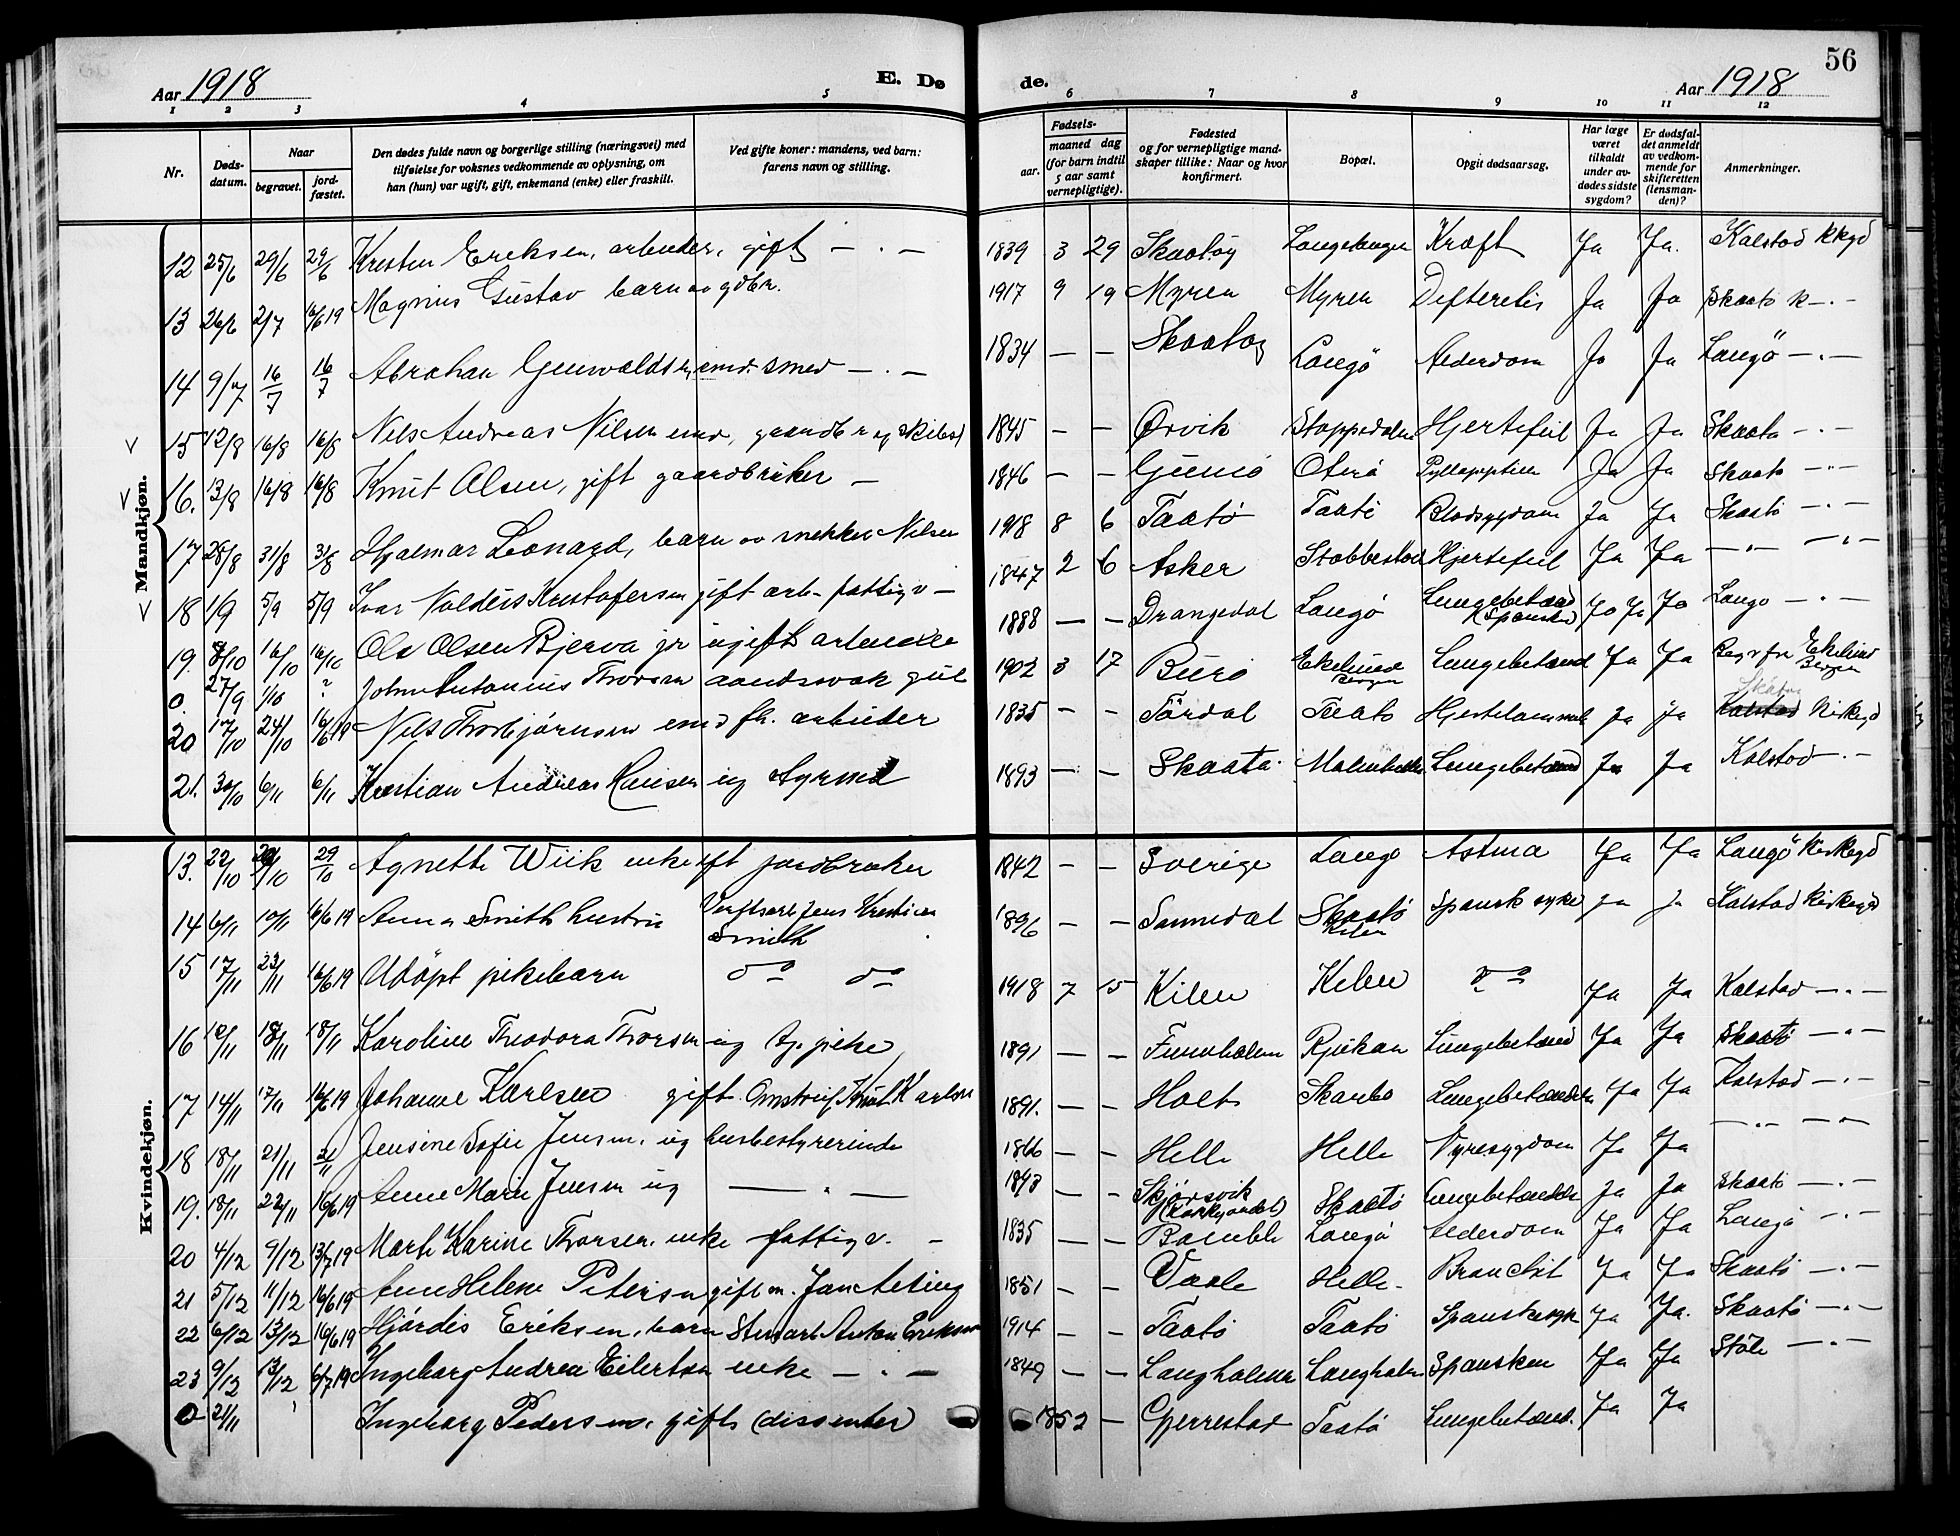 56
Aar 1918
E. Dø
de.
Aar 1918
1 2 3 4 5 6 7 8 9 10 11 12
Nr.
Døds-
datum.
Naar
begravet.
jord-
fæstet.
Den dødes fulde navn og borgerlige stilling (næringsvei) med
tilføielse for voksnes vedkommende av oplysning, om
han (hun) var ugift, gift, enkemand (enke) eller fraskilt.
Ved gifte koner: mandens, ved barn:
farens navn og stilling.
Fødsels-
aar.
maaned dag
(for barn indtil
5 aar samt
vernepligtige).
Fødested
og for vernepligtige mand-
skaper tillike: Naar og hvor
konfirmert.
Bopæl.
Opgit dødsaarsag.
Har læge
været
tilkaldt
under av-
dødes sidste
sygdom?
Er dødsfal-
det anmeldt
av vedkom-
mende for
skifteretten
(lensman-
den)?
Anmerkninger.
Mandkjøn.
12 25/6 29/6 29/6 Kristen Eriksen, arbeider, gift — · — 1839 3 29 Skaatøy Kræft Ja Ja. Kalstad kkgd
13 26/6 2/7 16/6 19 Magnus Gustav barn av gdbr. 1917 9 19 Myren Myren Difteretis Ja Ja Skaatø k — · —
14 9/7 16/7 16/7 Abraham smed — · — 1834 — — Skaatøy Langö Alderdom Ja Ja Langö — · —
15 12/8 16/8 16/8 Nils Andreas Nilsen emd, 1845 — — Ørvik Stoppedalen Hjertefeil Ja Ja Skaatø — · —
16. 13/8 16/8 16/8 Knut Olsen, gift gaardbruker — 1846 — — Oterø Ja Ja Skaatø — · —
17 28/8 31/8 31/8 Hjalmar Leonard, barn av snekker Nilsen 1918 8 6 Taatø Taatø Blodsygdom Ja Ja Skaatø — · —
18 1/9 5/9 5/9 Ivar Kristofersen gift arb. fattigv — 1847 2 6 Asker Stabbestad Hjertefeil Ja Ja — " — — " —
19. 8/10 16/10 16/10 Ole Olsen Bjerva jr ugift arbeider 1888 — — Drangedal Langø Lungebetænd (Spanske) Ja Ja Ja Langø — · —
0. 27/9 1/10 ? Johan Antonius Thorsen aandssvak gut 1902 3 17 Burø Ekelund Bergen Lungebetænd Ja Ja Begr fra Ekelund Bergen
20 17/10 24/10 16/6 19 Nils Thorbjörnsen emd fh. arbeider 1835 — — Tördal Taatø Hjertelammelse Ja Ja Skaatøy Kalstad kirkegd
21. 30/10 6/11 6/11 Kristian Andreas Hansen ug styrmd 1893 — — Skaatø Lungebetænd Ja Ja Kalstad — · —
Kvindekjøn.
13. 22/10 29/10 29/10 Agnette Wiik enke eft jordbruker 1842 — — Sverige Langø Astma Ja Ja Langö kirkegd
14 6/11 10/11 16/6 19 Anna Smith hustru Verftsarb Jens Kristian Smith 1896 — — Sannidal Skaatø Kilen Spansk syke ja ja Kalstad kirkegd
15 17/11 23/11 16/6 19 Udöpt pikebarn do do 1918 7 15 Kilen Kilen do Ja Ja Kalstad — · —
16 12/11 18/11 18/11 Karoline Theodora Thorsen ug tj. pike 1891 — — Furuholmen Rjukan Lungebetænd Ja Ja Skaatø — " —
17 14/11 17/11 16/6 19 Johanne Karlsen gift Knut Karlsen 1891. — — Holt Skarbo Lungebetændelse Ja Ja Kalstad — · —
18 18/11 21/11 21/11 Jensine Sofie Jensen, ug husbestyrerinde 1866 — — Helle Helle Nyresygdom Ja Ja — · — — " —
19. 18/11 22/11 16/6 19 Anne Marie Jensen ug — " — 1893 — — Skjørsvik Skaatø Lungebetændelse Ja Ja Skaatø — · —
20 4/12 9/12 13/7 19 Marte Karine Thorsen. enke fattigv. — 1835 — — Bamble Langø Alderdom Ja Ja Langø — · —
21 5/12 11/12 16/6 19 Anne Helene Petersen gift m. Jan 1851 — — Vaale Helle — Bronchit Ja Ja Skaatø — · —
22 6/12 13/12 16/6 19 Hjördis Eriksen, barn Stuert Anton Eriksen 1914 — — Taatø Taatø Spanskesyke Ja Ja. Skaatø — · —
23 9/12 13/12 6/7 19 Ingeborg Andrea Eilertsen enke — · — 1849 — — Langholmen Langholmen Spansken Ja Ja Støle — · —
0 21/11 Ingeborg Pedersen, gift (dissenter) 1852 — Gjerrestad Taatø Lungebetænd. Ja Ja